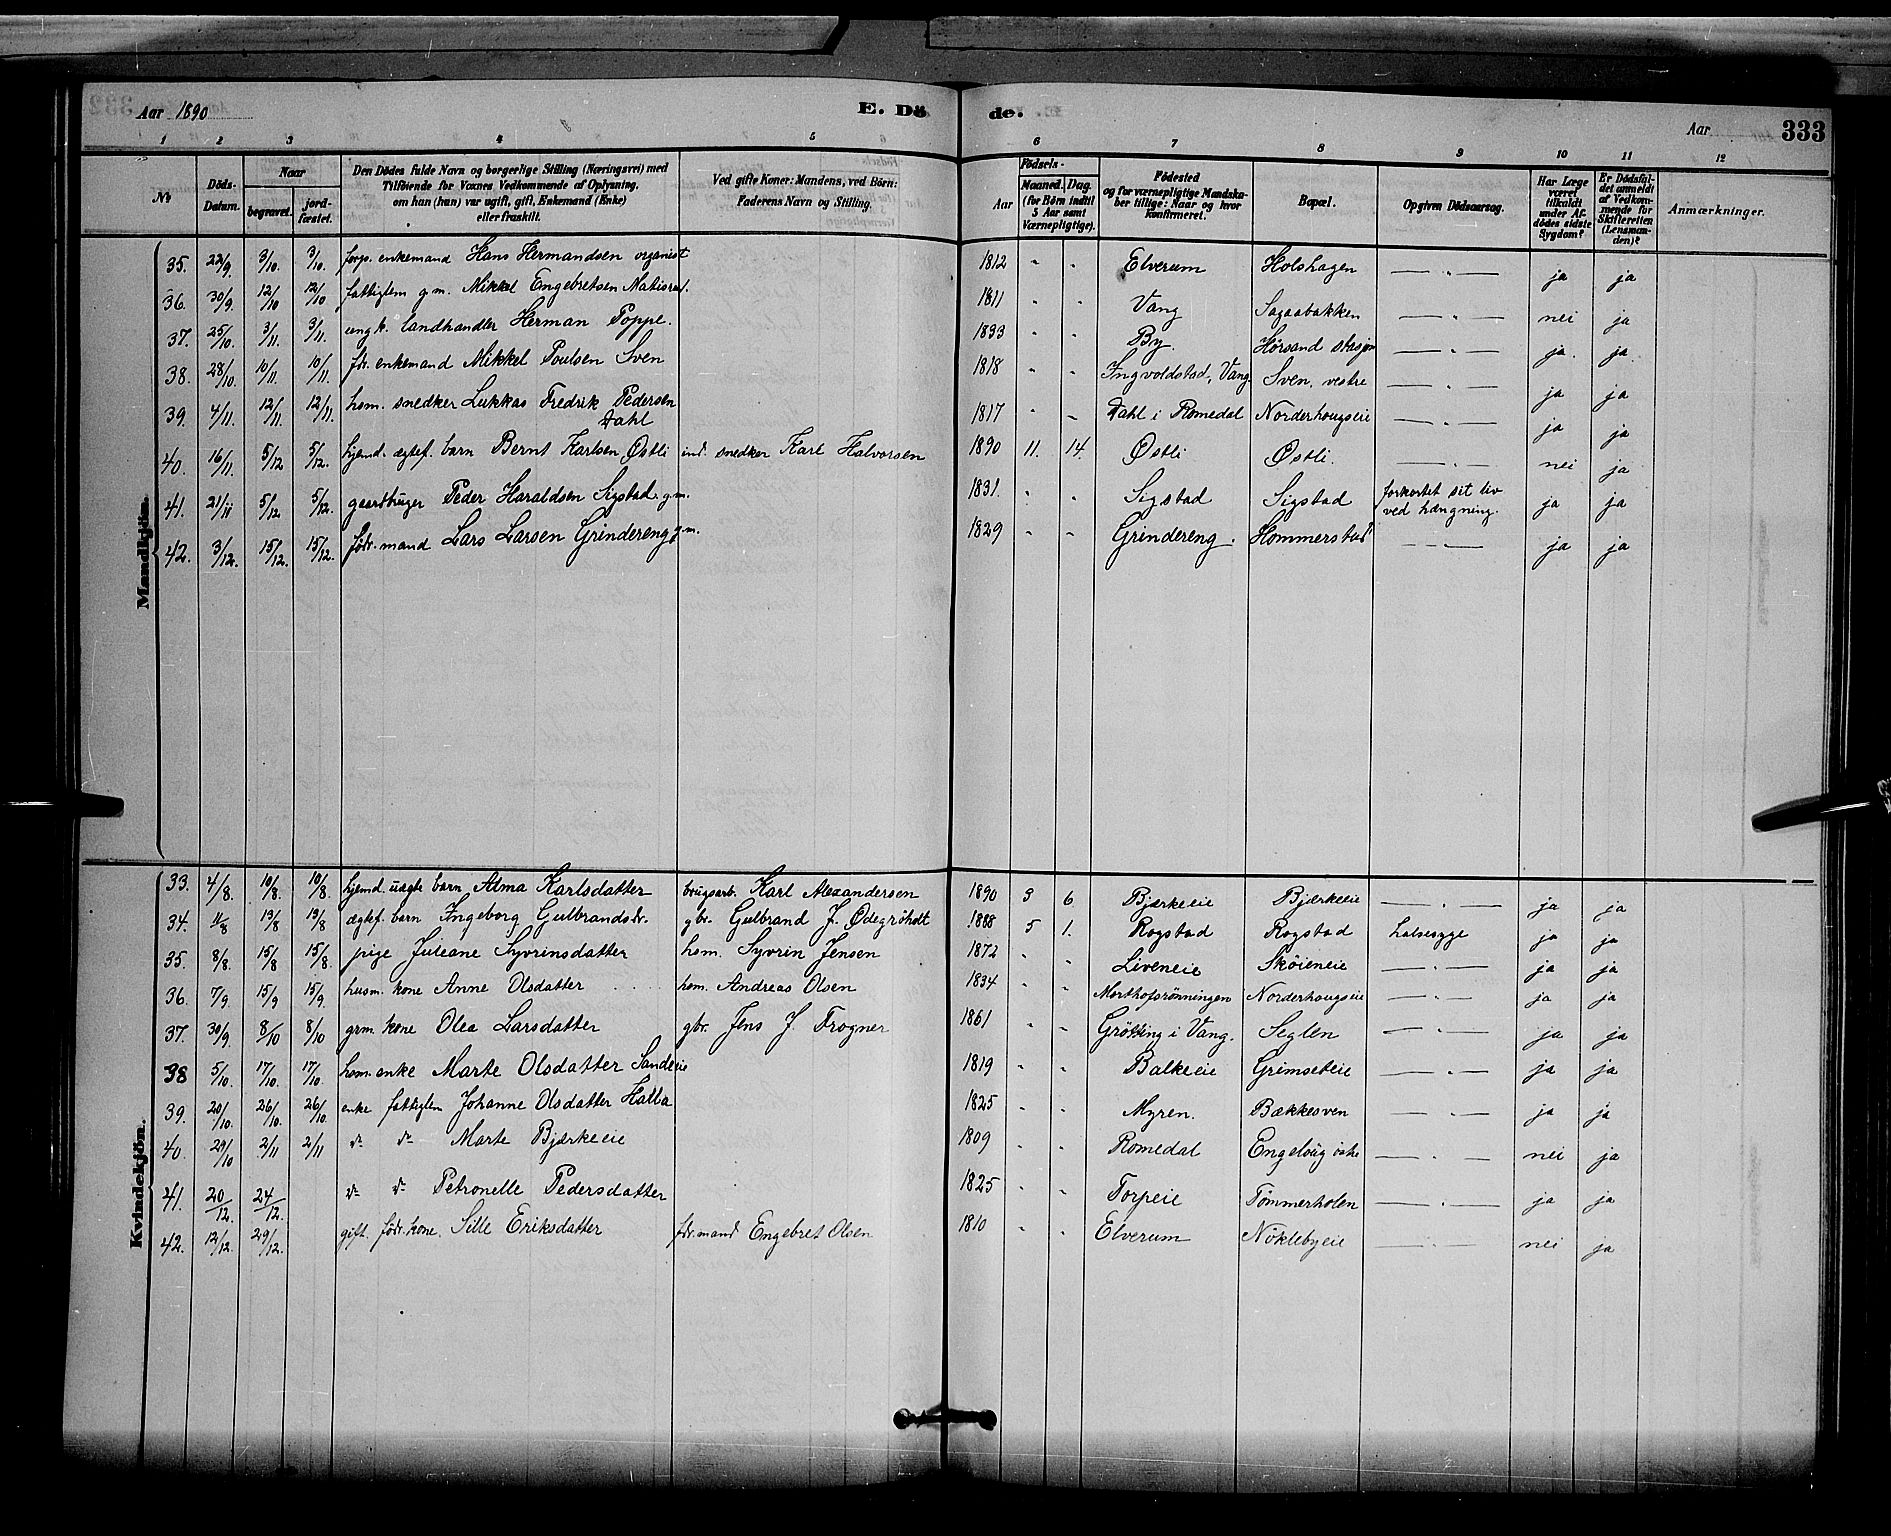 Aar 1890 E. Dö de. Aar 333
1 2 3 4 5 6 7 8 9 10 11 12
№ Döds-Datum. Naar begravet. jord-fæstet. Den Dödes fulde Navn og borgerlige Stilling (Næringsvei) med Tilföiende for Voxnes Vedkommende af Oplysning, om han (hun) var ugift, gift, Enkemand (Enke) eller fraskilt. Ved gifte Koner: Mandens, ved Börn: Faderens Navn og Stilling. Födsels- Aar Maaned. Dag. (for Börn indtil 5 Aar samt Værnepligtige). Födested og for værnepligtige Mandskaber tillige: Naar og hvor konfirmeret. Bopæl. Opgiven Dödsaarsag. Har Læge været tilkaldt under Afdödes sidste Sygdom? Er Dödsfaldet anmeldt af Vedkommende for Skifteretten (Lensmanden)? Anmærkninger.
Mandkjön.
35. 22/9 3/10. 3/10. forps. enkemand Hans Hermandsen organist 1812 " " Elverum Holshagen — " — ja ja
36. 30/9. 12/10 12/10 fattiglem g.m. Mikkel Engebretsen 1811 " " Vang Sagaabakken — " — nei ja
37. 25/10. 3/11. 3/11. ungk. landhandler Herman Poppe. 1833 " " By. Hörsand stasjon — " — ja. ja
38. 28/10. 10/11. 10/11. fdr. enkemand Mikkel Poulsen Sven 1818 " " Ingvoldstad, Vang Sven, vestre — " — ja ja
39. 4/11. 12/11. 12/11. hsm. snedker Lukkas Fredrik Pedersen Dahl 1817 " " Dahl i Romedal Norderhougseie — " — ja ja
40. 16/11. 5/12 5/12. hjemd. ægtef. barn Bernt Karlsen Østli ind. snedker Karl Halvorsen 1890 11. 14. Østli Østli. — " — nei ja
41. 21/11 5/12 5/12. gaardbruger Peder Haraldsen Sigstad g.m. 1831. " " Sigstad Sigstad forkortet sit liv ved hængning. ja ja
42. 3/12. 15/12. 15/12. födr. mand Lars Larsen Grindereng g.m. 1829 " " Grindereng. Hommerstad — " — ja ja
Kvindekjön.
33. 4/8. 10/8. 10/8. hjemd. uægte barn Alma Karlsdatter brugsarb. Karl Alexandersen 1890 3 6 Bjærkeeie Bjærkeeie — " — ja ja
34. 4/8 13/8 13/8 ægtef. barn Ingeborg Gulbrandsdr. gbr. Gulbrand J. Ödegröhdt 1888 5 1. Rogstad Rogstad halsesyge ja ja
35. 8/8. 15/8 15/8. pige Juleane Syvrinsdatter hsm. Syvrin Jensen 1872 " " Liveneie Sköieneie — " — ja ja
36. 7/9. 15/9 15/9. husm. kone Anne Olsdatter hsm. Andreas Olsen 1834 " " Morthofsrönningen Norderhougseie — " — ja ja
37. 30/9. 8/10 8/10 grm. kone Olea Larsdatter gbr. Jens J. Frogner 1861 " " Grötting i Vang. Seglen — " — ja ja
38 5/10. 17/10. 17/10. hsm. enke Marte Olsdatter Sandeeie 1819 " " Balkeeie Grimseteie — " — ja ja
39. 20/10. 26/10. 26/10 enke fattiglem Johanne Olsdatter Halla 1825 " " Myren. Bækkesven — " — ja ja
40. 29/10 2/11 2/11 do do Marte Bjærkeeie 1809 " " Romedal Engeloug östre — " — nei ja
41. 20/12. 24/12. do do Petronelle Pedersdatter 1825 " " Torpeie Tömmerholen — " — ja ja
42. 12/12. 29/12. gift. födr. kone. Sille Eriksdatter fdr. mand Engebret Olsen 1810 " " Elverum Nöklebyeie — " — nei ja